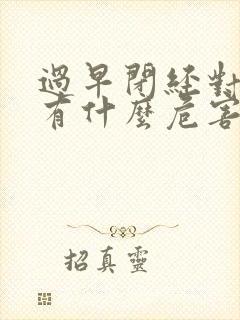 過早閉經對
有什麼危害
招真靈